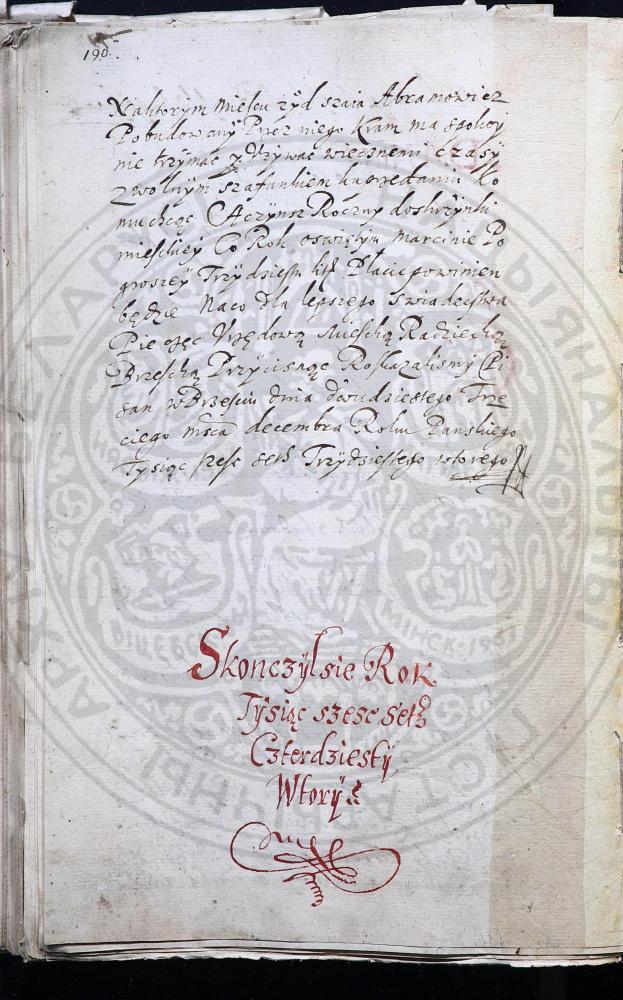 190.
Naktorym miescu zyd szaia Abramowicz
Pobudowany Przez niego Kram ma spokoy
nie trzymac y Uzywac wiecznemi czasy
z wolnym szafunkiem ku przedaniu ko
mu chcąc A Czynsz Roczny do skrzynki
mieskiey Co Rok o swiętym Marcinie Po
groszey Trzydziestu Płacic powinien
będzie Naco dla lepszego swiadectwa
Pieczęc Urzędową Mieską Radziecką
Brzeską Przycisnąc Roskazalismy Pi
san w Brzesciu dnia dwudziestego Trze
ciego decembra Roku Panskiego
Tysiąc szesc seth Trzydziestego wtorego
Skonczył sie Rok
Tysiąc szesc seth
Czterdziesty
Wtory